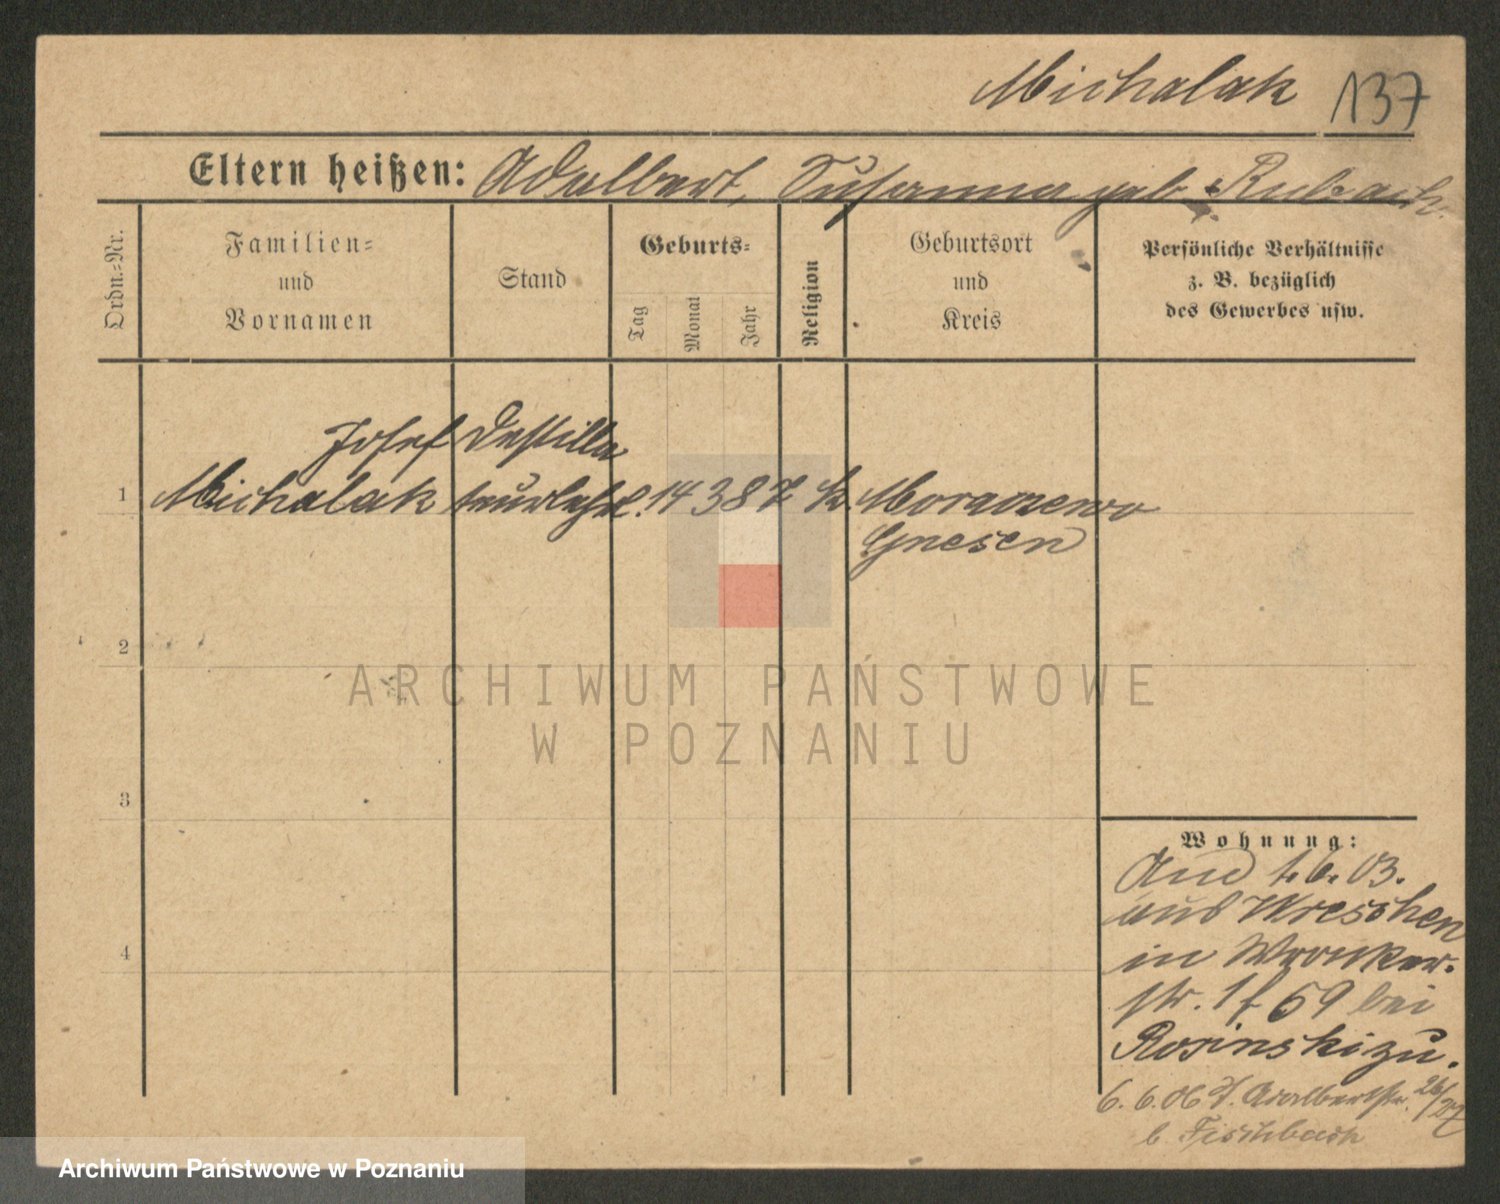 Michalak 137
Eltern heißen: Adalbert, Susanna geb. Rubach.
Ordn.=Nr.
Familien=
und
Vornamen
Stand
Geburts=
Tag
Monat
Jahr
Religion
Geburtsort
und
Kreis
Persönliche Verhältnisse
z. B. bezüglich
des Gewerbes usw.
Josef Destilla
1 Michalak teurlehrl. 14 3 87 k. 
Gnesen
2
ARCHIWUM PAŃSTWOWE
W POZNANIU
3
4
Wohnung:
1.6.03.
aus Wreschen
in Wronker-
str. 1 69 bei
Rosinski zu.
6. 6. 06 Adalbertstr. 26/27
b. Fischbach
Archiwum Państwowe w Poznaniu